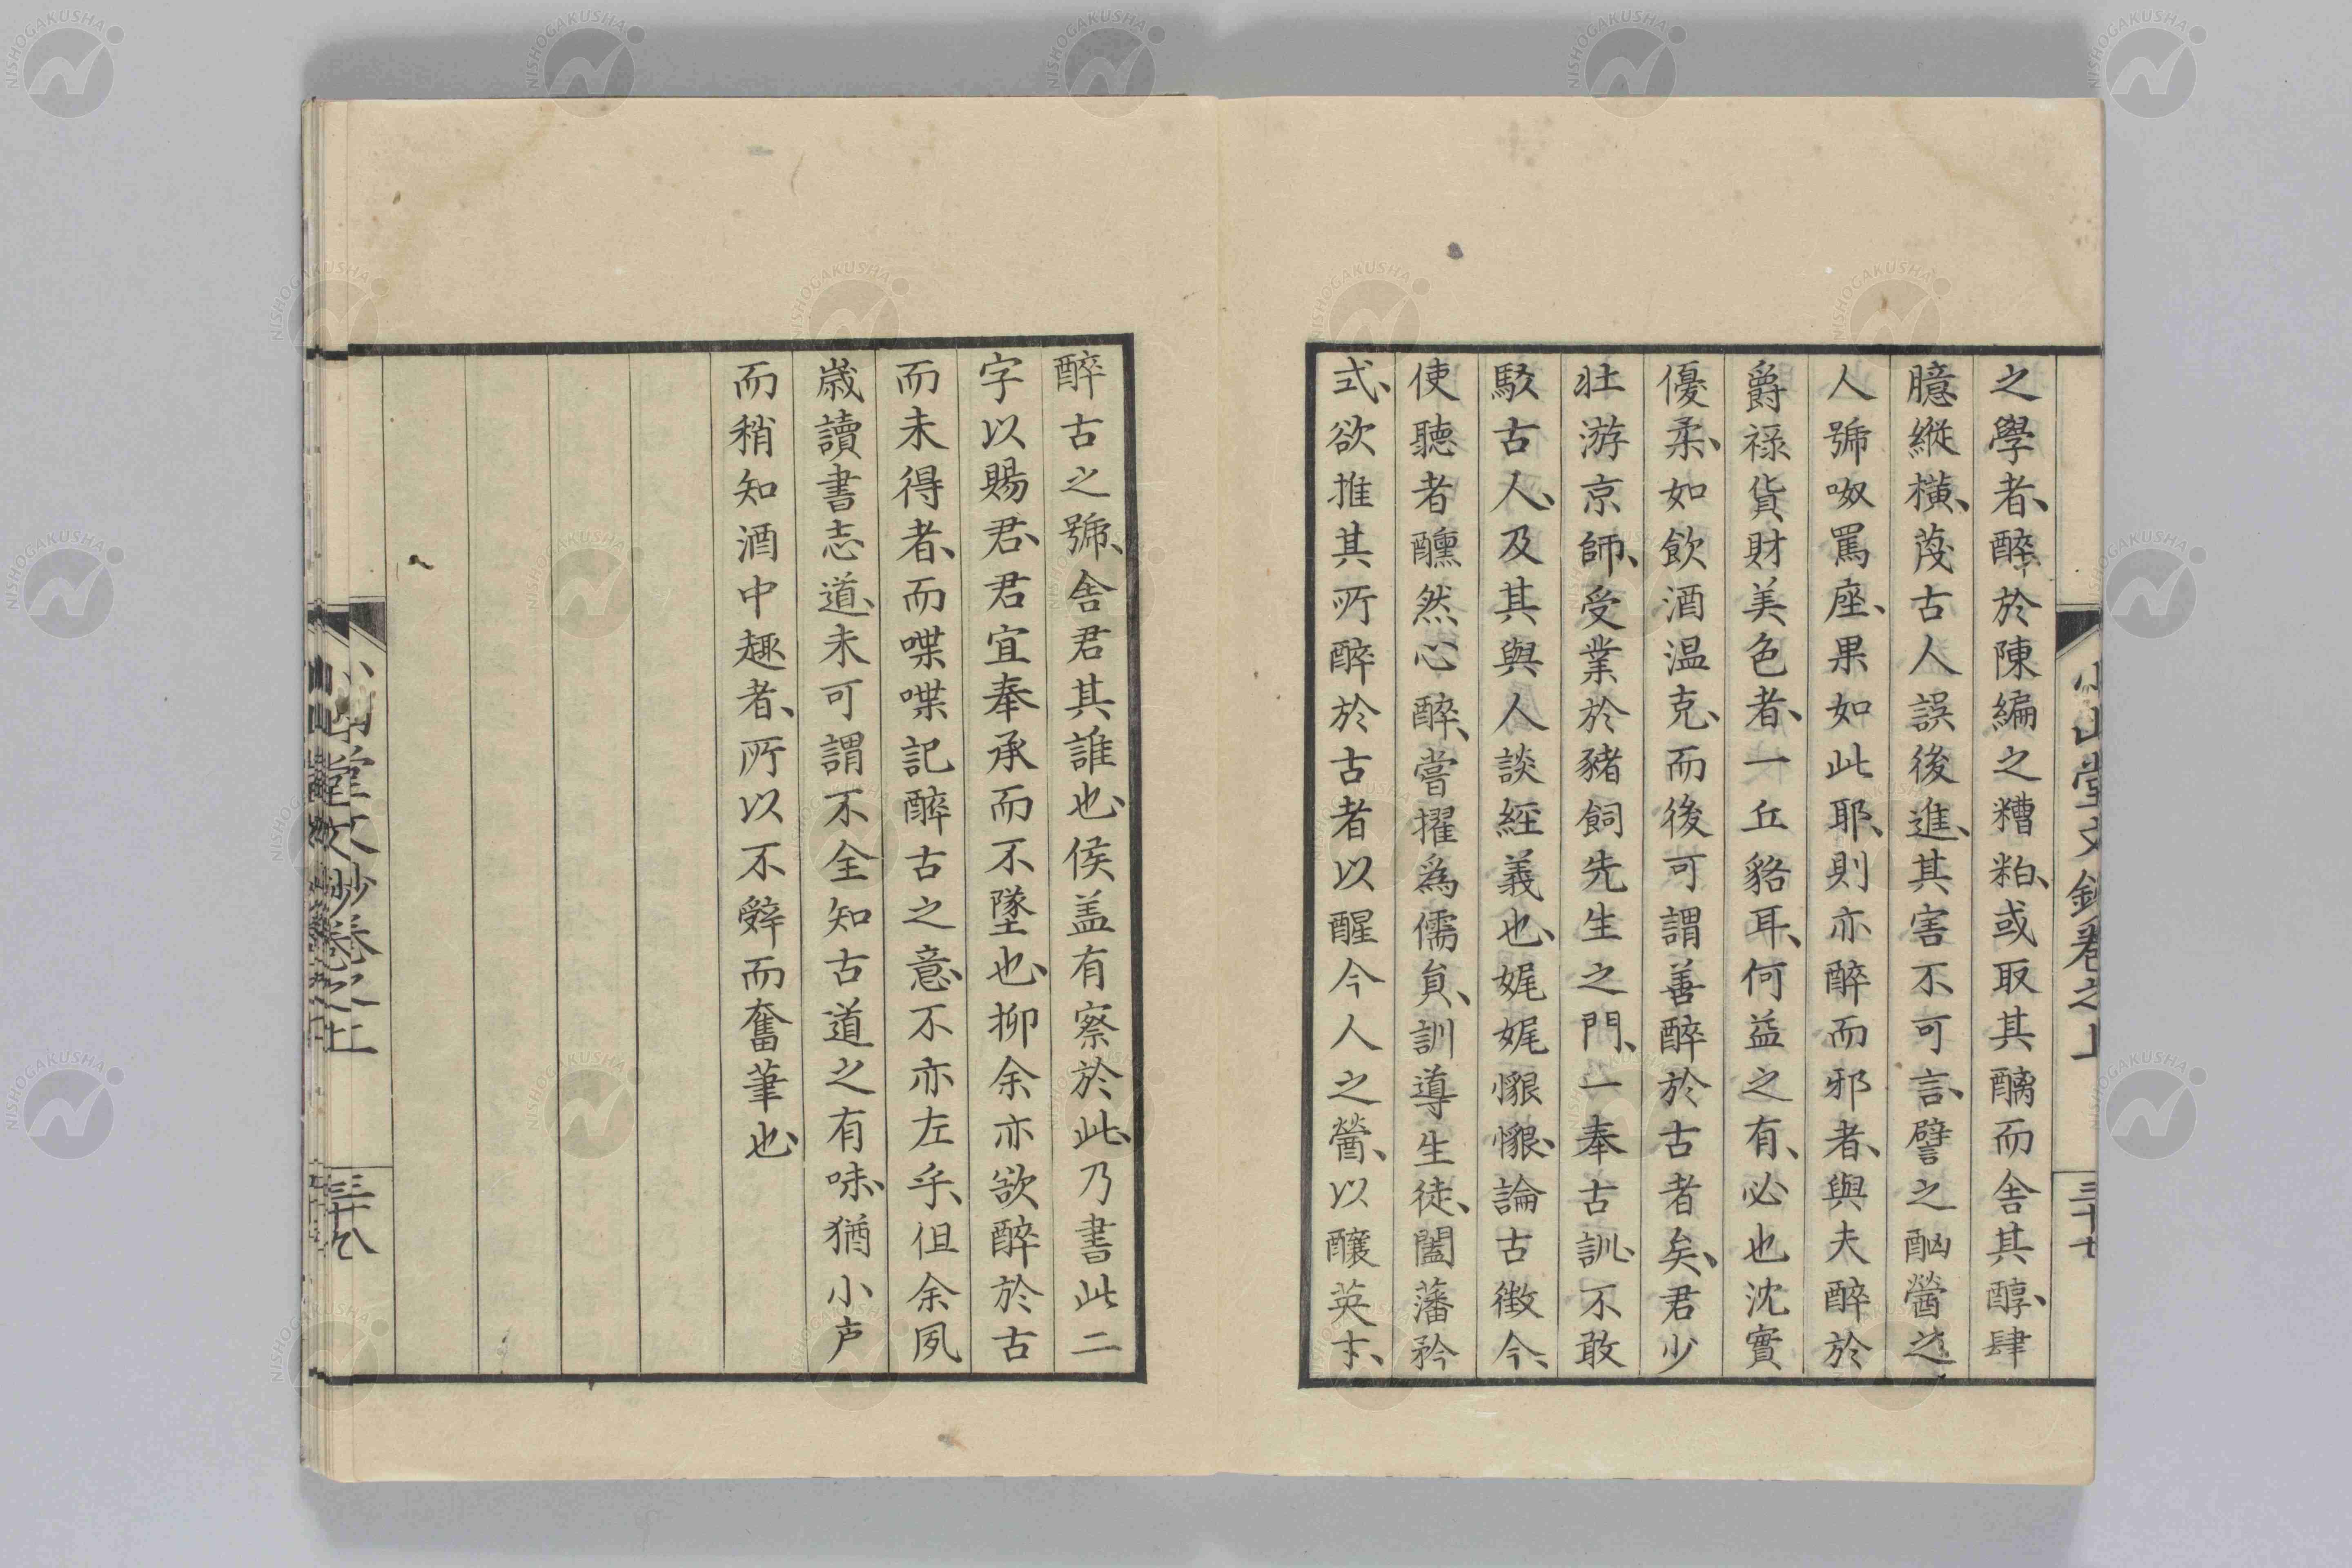 之學者、醉於陳編之糟粕、或取其醨而舍其醇、肆
臆縱橫、蔑古人誤後進、其害不可言、譬之酗醟之
人號呶罵座、果如此耶、則亦醉而邪者、與夫醉於
爵祿貨財美色者、一丘貉耳、何益之有、必也沈實
優柔、如飲酒温克、而後可謂善醉於古者矣、君少
壮游京師、受業於豬飼先生之門、一奉古訓、不敢
駁古人、及其與人談經義也、娓娓懇懇、論古徴今、
使聽者醺然心醉、嘗擢為儒員、訓導生徒、闔藩矜
式、欲推其所醉於古者以醒今人之醟、以釀英才、
小山堂文鈔卷之上
三十七
醉古之號、舍君其誰也、侯盖有察於此、乃書此二
字以賜君、君宜奉承而不墜也、抑余亦欲醉於古
而未得者、而喋喋記醉古之意、不亦左乎、但余夙
歳讀書志道、未可謂不全知古道之有味、猶小户
而稍知酒中趣者、所以不辭而奮筆也、
小山堂文鈔卷之上
三十八
NISHOGAKUSHA